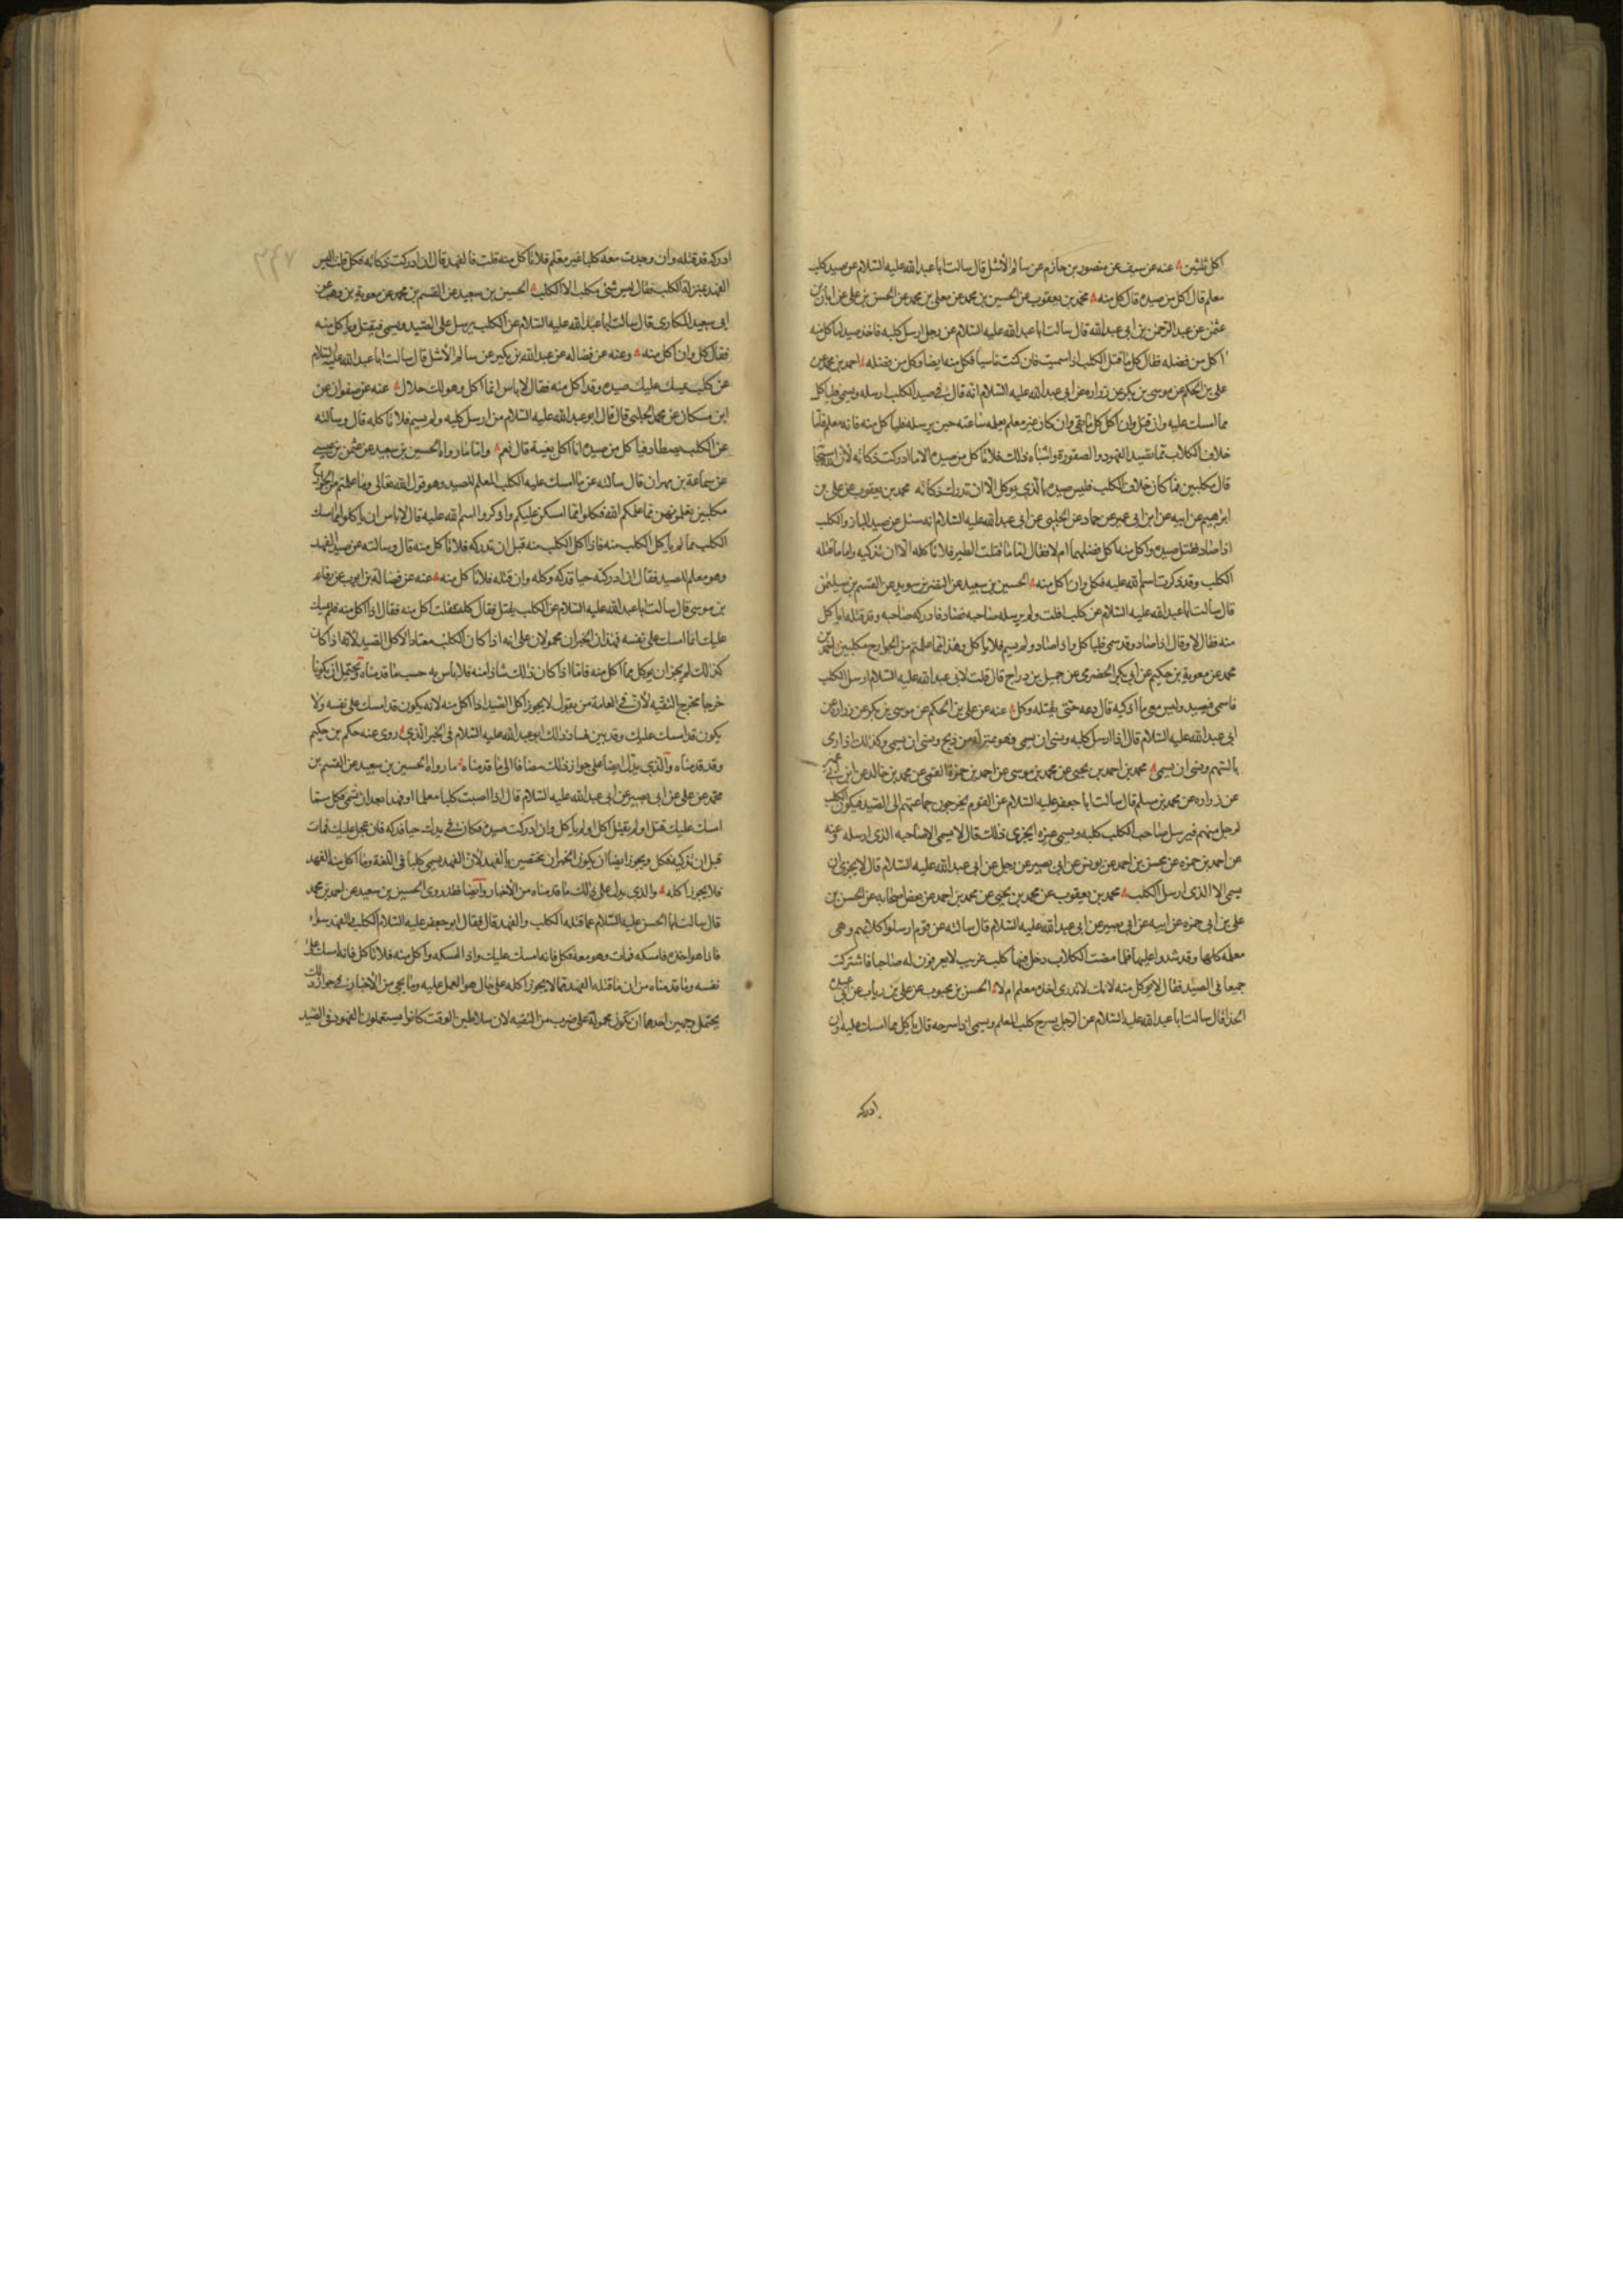 اكل ثلثين عنه عن سيف عن منصور بن حازم عن سالم الأشل قال سالت ابا عبد الله عليه السلام عن صيد كلب
معلم قد اكل من صيده قال كل منه محمد بن يعقوب عن الحسين بن محمد عن معلى بن محمد عن الحسن بن على عن ابان بن
عثمن عن عبد الرحمن بن ابى عبد الله قال سالت ابا عبد الله عليه السلام عن رجل ارسل كلبه فاخذ صيدا فاكل منه
اكل من فضله فقال كل ما قتل الكلب اذا سميت فان كنت ناسيا فكل منه ايضا وكل من فضله احمد بن محمد عن
على بن الحكم عن موسى بن بكر عن زراره عن ابى عبد الله عليه السلام انه قال فى صيد الكلب ارسله وسمى فلياكل
مما امسك عليه وان قتل وان اكل فكل ما بقى وان كان غير معلم يعلمه ساعته حين يرسله فلياكل منه فانه معلم فاما
خلاف الكلاب مما تصيد الفهود والصقورة واشباه ذلك فلا تاكل من صيده الا ما ادركت ذكاته لأن الله
قال مكلبين فما كان خلاف الكلب فليس صيده بالذى يوكل الا ان تدرك ذكاته محمد بن يعقوب عن على بن
ابرهيم عن ابيه عن ابن ابى عمير عن حماد عن الحلبى عن ابى عبد الله عليه السلام انه سئل عن صيد الباز والكلب
اذا صاد فقتل صيده واكل منه اكل فضلهما ام لا فقال اما ما قتلت الطير فلا تاكله الا ان تذكيه واما ما قتله
الكلب وقد ذكرت اسم الله عليه فكل وان اكل منه الحسين بن سعيد عن النضر بن سويد عن القسم بن سليمن
قال سالت ابا عبد الله عليه السلام عن كلب افلت ولم يرسله صاحبه فصاد فادركه صاحبه وقد قتله اياكل
منه فقال لا وقال اذا صاد وقد سمى فلياكل واذا صاد ولم يسم فلا ياكل وهذا مما علمتم من الجوارح مكلبين احمد بن
محمد عن معوية بن حكيم عن ابى بكر الحضرمى عن جميل بن دراج قال قلت لابى عبد الله عليه السلام ارسل الكلب
فاسمى فيصيد وليس معى ما اذكيه قال دعه حتى يقتله وكل عنه عن على بن الحكم عن موسى بن بكر عن زراره عن
ابى عبد الله عليه السلام قال اذا ارسل كلبه ونسى ان يسمى فهو بمنزلة من ذبح ونسى ان يسمى وكذلك اذا رمى
بالسهم ونسى ان يسمى محمد بن احمد بن يحيى عن محمد بن موسى عن احمد بن حمزة القمى عن محمد بن خالد عن ابن ابى عمير
عن زراره عن محمد بن مسلم قال سالت ابا جعفر عليه السلام عن القوم يخرجون جماعتهم الى الصيد فيكون الكلب
لرجل منهم فيرسل صاحب الكلب كلبه ويسمى غيره ايجزى ذلك قال لا يسمى الا صاحبه الذى ارسله عنه
عن احمد بن حمزه عن محسن بن احمد عن يونس عن ابى بصير عن رجل عن ابى عبد الله عليه السلام قال لا يجزى ان
يسمى الا الذى ارسل الكلب محمد بن يعقوب عن محمد بن يحيى عن محمد بن احمد عن بعض اصحابه عن الحسن بن
على بن ابى حمزه عن ابيه عن ابى بصير عن ابى عبد الله عليه السلام قال سالته عن قوم ارسلوا كلابهم وهى
معلمه كلها وقد سموا عليها فلما مضت الكلاب دخل فيها كلب غريب لا يعرفون له صاحبا فاشتركت
جميعا فى الصيد فقال لا يوكل منه لانك لا تدرى اخذه معلم ام لا الحسن بن محبوب عن على بن رياب عن ابى عبيده
الحذا قال سالت ابا عبد الله عليه السلام عن الرجل يسرح كلبه المعلم ويسمى اذا سرحه قال ياكل مما امسك عليه وان
ادركه
ادركه قد قتله وان وجدت معه كلبا غير معلم فلا تاكل منه قلت فالفهد قال ان ادركت ذكاته فكل قلت اليس
الفهد بمنزلة الكلب فقال ليس شئ مكلب الا الكلب الحسين بن سعيد عن القسم بن محمد عن معوية بن وهب عن
ابى سعيد المكارى قال سالت ابا عبد الله عليه السلام عن الكلب يرسل على الصيد ويسمى فيقتل وياكل منه
فقال كل وان اكل منه وعنه عن فضاله عن عبد الله بن بكير عن سالم الأشل قال سالت ابا عبد الله عليه السلام
عن كلب يمسك عليك صيده وقد اكل منه فقال لا باس انما اكل وهو لك حلال عنه عن صفوان عن
ابن مسكان عن محمد الحلبى قال قال ابو عبد الله عليه السلام من ارسل كلبه ولم يسم فلا ياكله قال وسالته
عن الكلب يصطاد فياكل من صيده اناكل بقيته قال نعم واما ما رواه الحسين بن سعيد عن عثمن بن عيسى
عن سماعة بن مهران قال سالته عن ما امسك عليه الكلب المعلم للصيد وهو قول الله تعالى وما علمتم من الجوارح
مكلبين تعلمونهن مما علمكم الله فكلوا مما امسكن عليكم واذكروا اسم الله عليه قال لا باس ان ياكلوا مما امسك
الكلب مما لم ياكل الكلب منه فاذا اكل الكلب منه قبل ان تدركه فلا تاكل منه قال وسالته عن صيد الفهد
وهو معلم للصيد فقال ان ادركته حيا فذكه وكله وان قتله فلا تاكل منه عنه عن فضالة بن ايوب عن رفاعه
بن موسى قال سالت ابا عبد الله عليه السلام عن الكلب يقتل فقال كله فقلت اكل منه فقال اذا اكل منه فلم يمسك
عليك انما امسك على نفسه فهذان الخبران محمولان على انه اذا كان الكلب معتادا لاكل الصيد لانه اذا كان
كذلك لم يجز ان يوكل مما اكل منه فاما اذا كان ذلك شاذا منه فلا باس به حسب ما قدمناه ويحتمل ان يكونا
خرجا مخرج التقيه لأن فى العامة من يقول لا يجوز اكل الصيد اذا اكل منه لانه يكون قد امسك على نفسه ولا
يكون قد امسك عليك وقد بين فساد ذلك ابو عبد الله عليه السلام فى الخبر الذى روى عنه حكم بن حكيم
وقد قدمناه والذى يدل ايضا على جواز ذلك مضافا الى ما قدمناه ما رواه الحسين بن سعيد عن القسم بن
محمد عن على عن ابى بصير عن ابى عبد الله عليه السلام قال اذا اصبت كلبا معلما او فهدا بعد ان تسمى فكل مما
امسك عليك قتل او لم يقتل اكل او لم ياكل وان ادركت صيده فكان فى يدك حيا فذكه فان عجل عليك فمات
قبل ان تذكيه فكل ويجوز ايضا ان يكون الخبران مختصين بالفهد لأن الفهد يسمى كلبا فى اللغة وما اكل منه الفهد
فلا يجوز اكله والذى يدل على ذلك ما قدمناه من الأخبار وايضا فقد روى الحسين بن سعيد عن احمد بن محمد
قال سالت ابا الحسن عليه السلام عما قتله الكلب والفهد قال فقال ابو جعفر عليه السلام الكلب والفهد سواء
فاذا هو اخذه فامسكه فمات وهو معه فكل فانه امسك عليك واذا امسكه واكل منه فلا تاكل فانه امسك على
نفسه وما قدمناه من ان ما قتله الفهد مما لا يجوز اكله على حال هو العمل عليه وما يجى من الأخبار فى جواز ذلك
يحتمل وجهين احدهما ان تكون محمولة على ضرب من التقيه لان سلاطين الوقت كانوا يستعملون الفهود فى الصيد